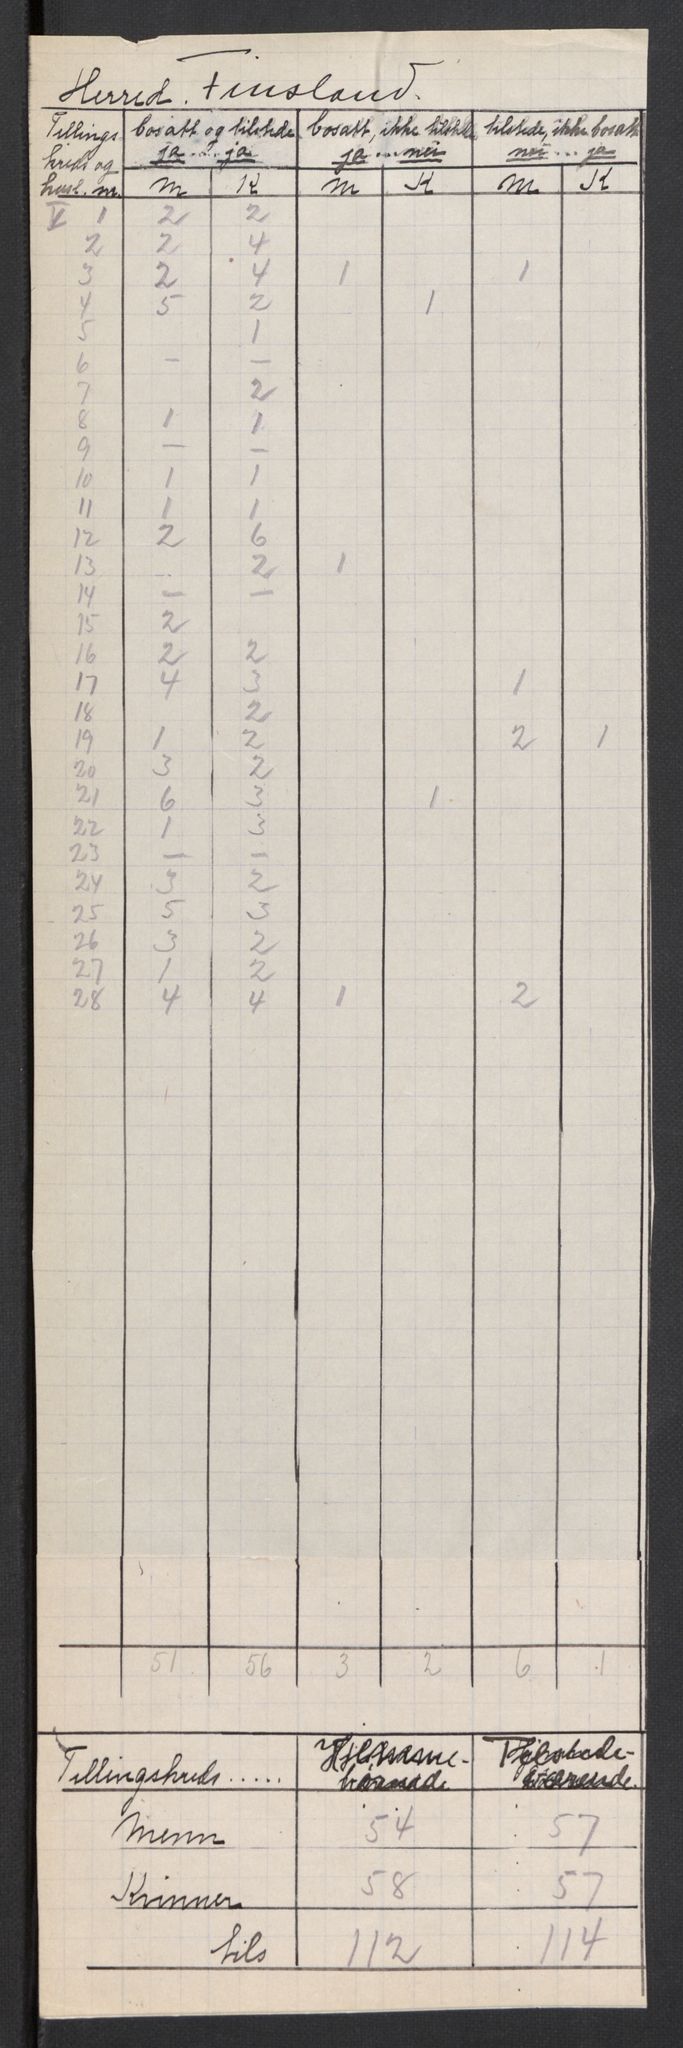 Herred. Finsland.
Tellings bosatt og tilstede bosatt, ikke tilstede tilstede, ikke bosatt
kreds og ja ja ja nei nei ja
husl. nr. M K M K M K
V 1 2 2
2 2 4
3 2 4 1 1
4 5 2 1
5 1
6 – –
7 2
8 1 1
9 – –
10 1 1
11 1 1
12 2 6
13 .. 2 1
14 – –
15 2
16 2 2
17 4 3 1
18 2
19 1 2 2 1
20 3 2
21 6 3 1
22 1 3
23 – –
24 3 2
25 5 3
26 3 2
27 1 2
28 4 4 1 2
51 56 3 2 6 1
Hjemme- Tilstede-
Tellingskreds ..... hørende værende.
Menn 54 57
Kvinner 58 57
tils 112 114